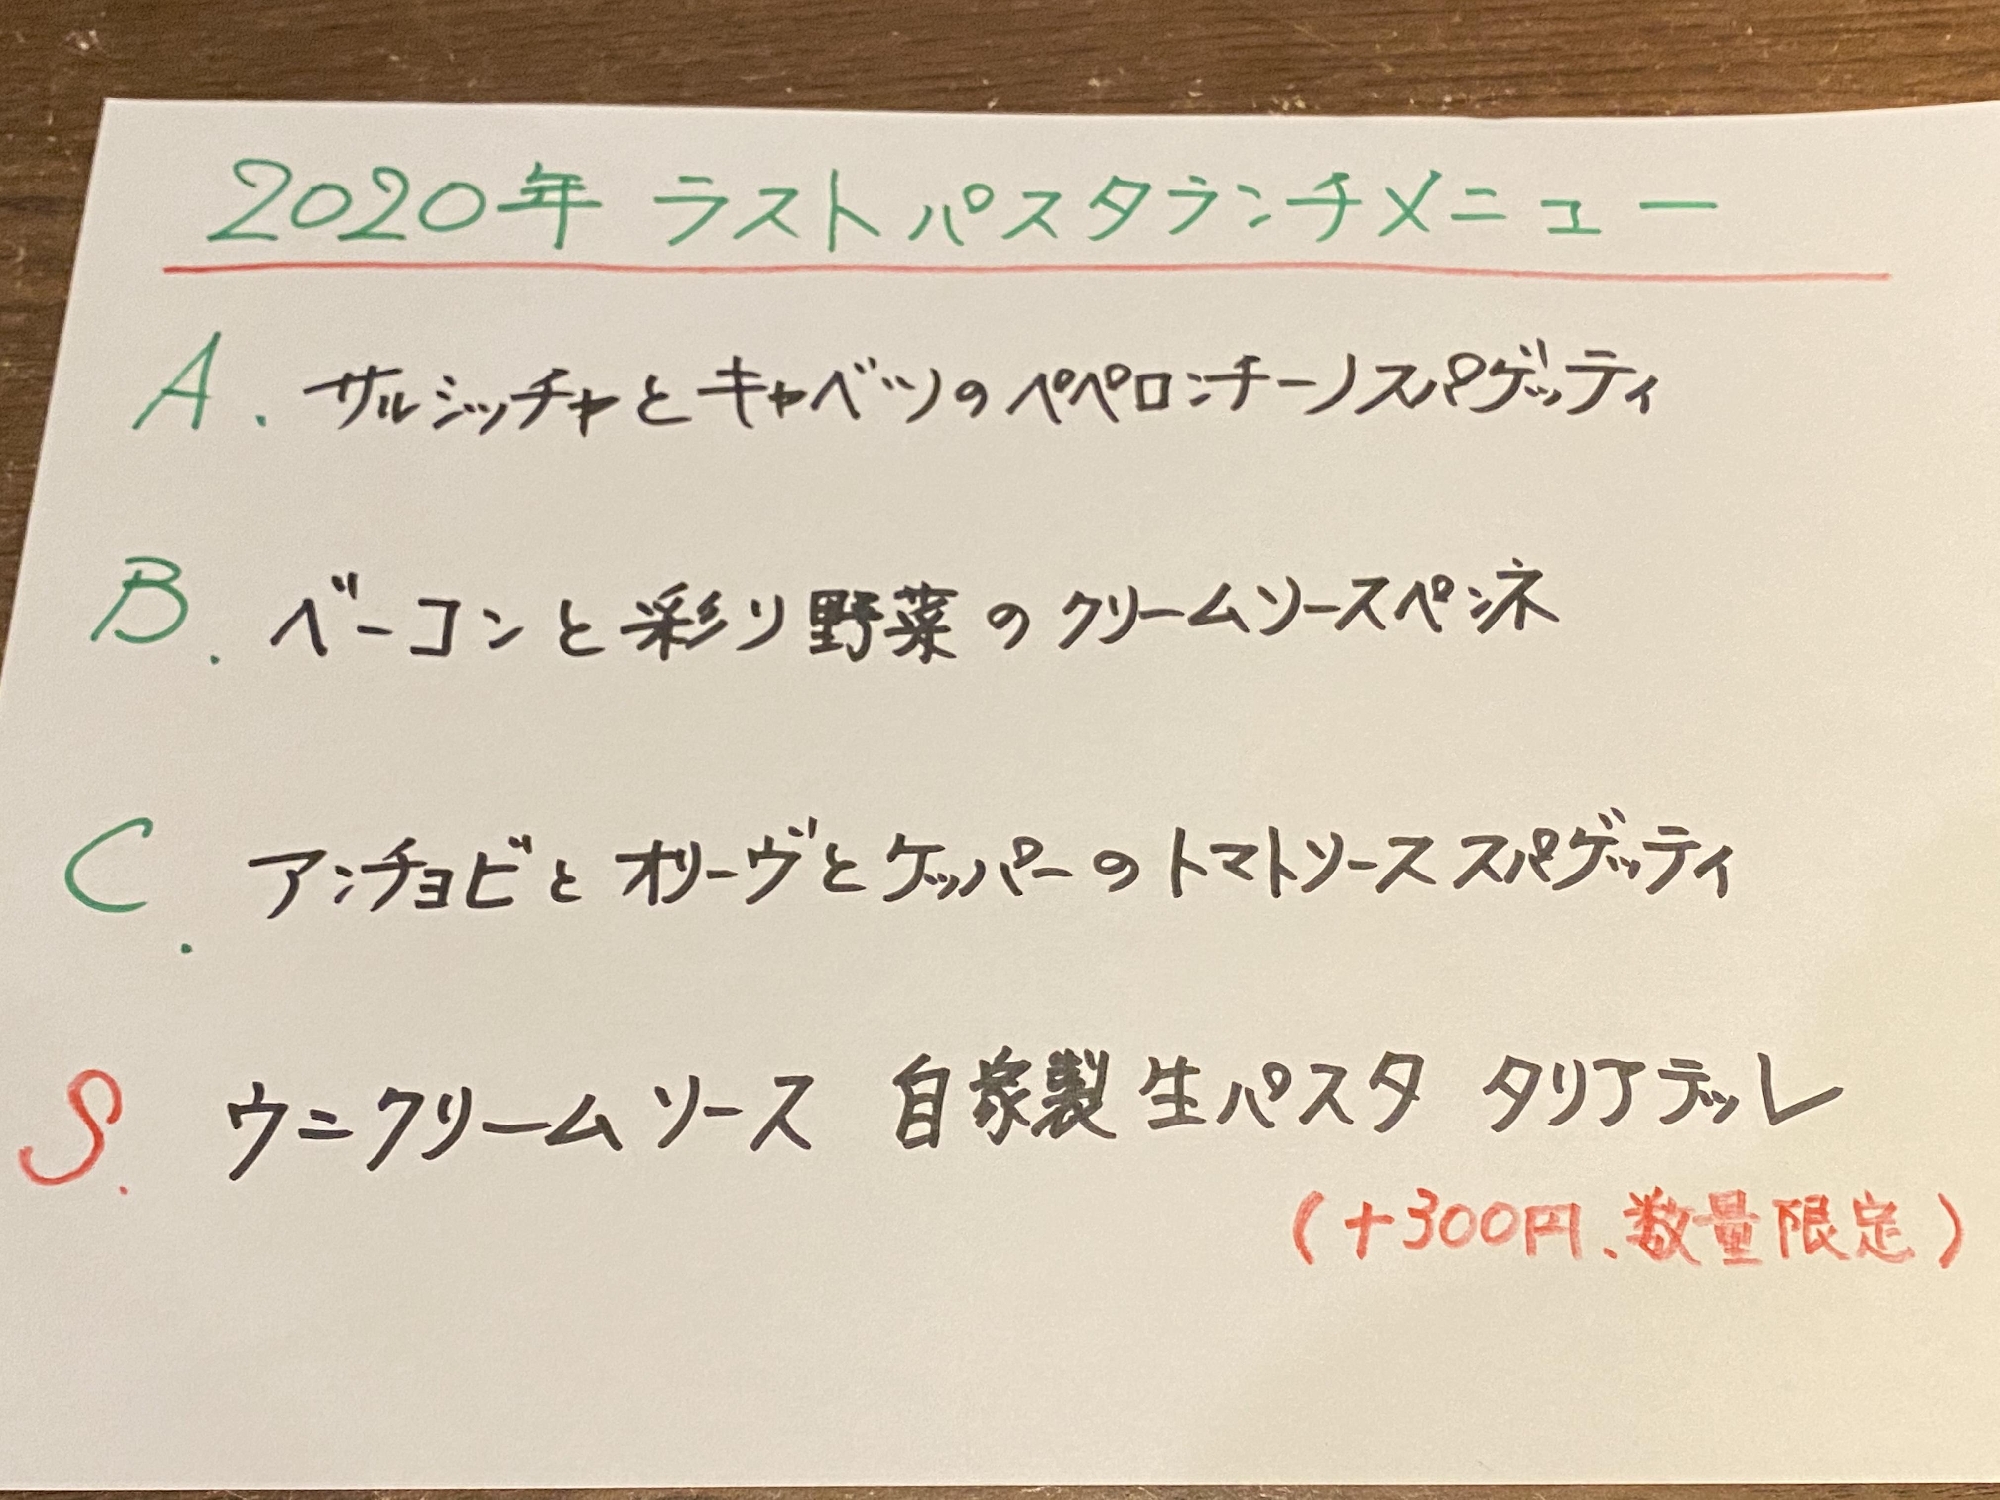 2020年 ラストパスタランチメニュー
A. サルシッチャとキャベツのペペロンチーノスパゲッティ
B. ベーコンと彩り野菜のクリームソースペンネ
C. アンチョビとオリーヴとケッパーのトマトソーススパゲッティ
S. ウニクリームソース 自家製生パスタ タリアテッレ
(+300円、数量限定)